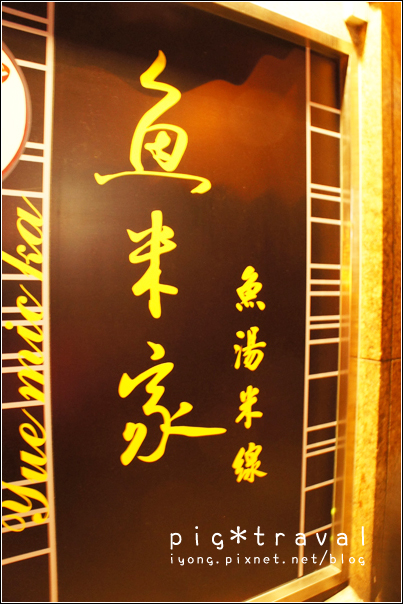 魚米家
魚湯米線
Yue mix ka
pig*traval
iyong.pixnet.net/blog